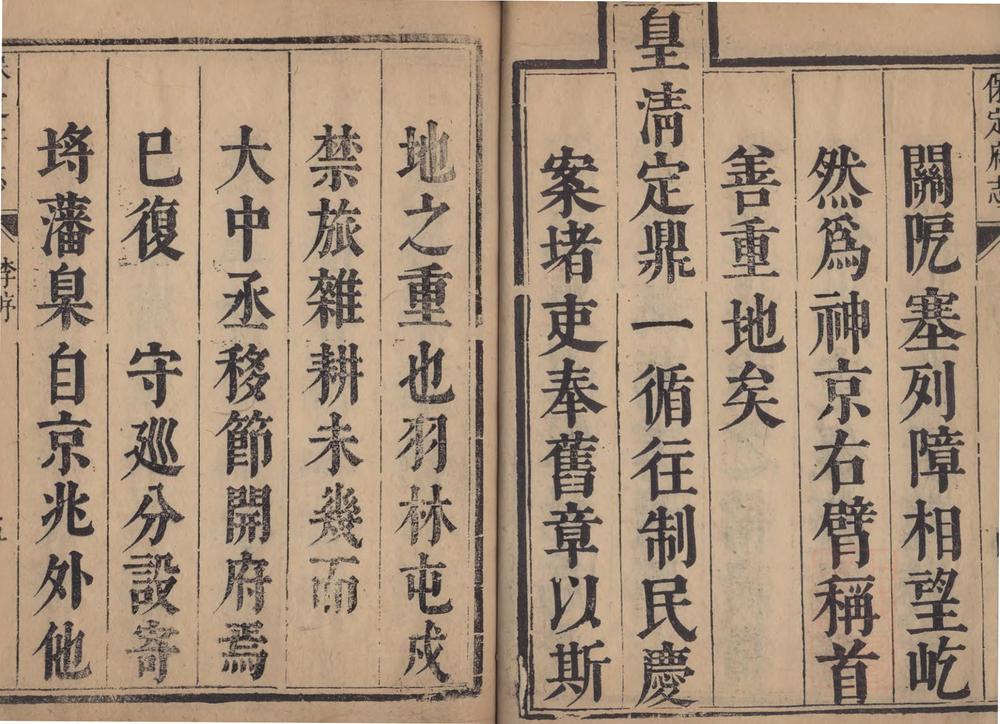 保定府志
關阨塞列障相望屹
然爲神京右臂稱首
善重地矣
皇清定鼎一循往制民慶
案堵吏奉舊章以斯
地之重也羽林屯戍
禁旅雜耕未幾而
大中丞移節開府焉
巳復　守巡分設寄
埓藩臬自京兆外他
李序